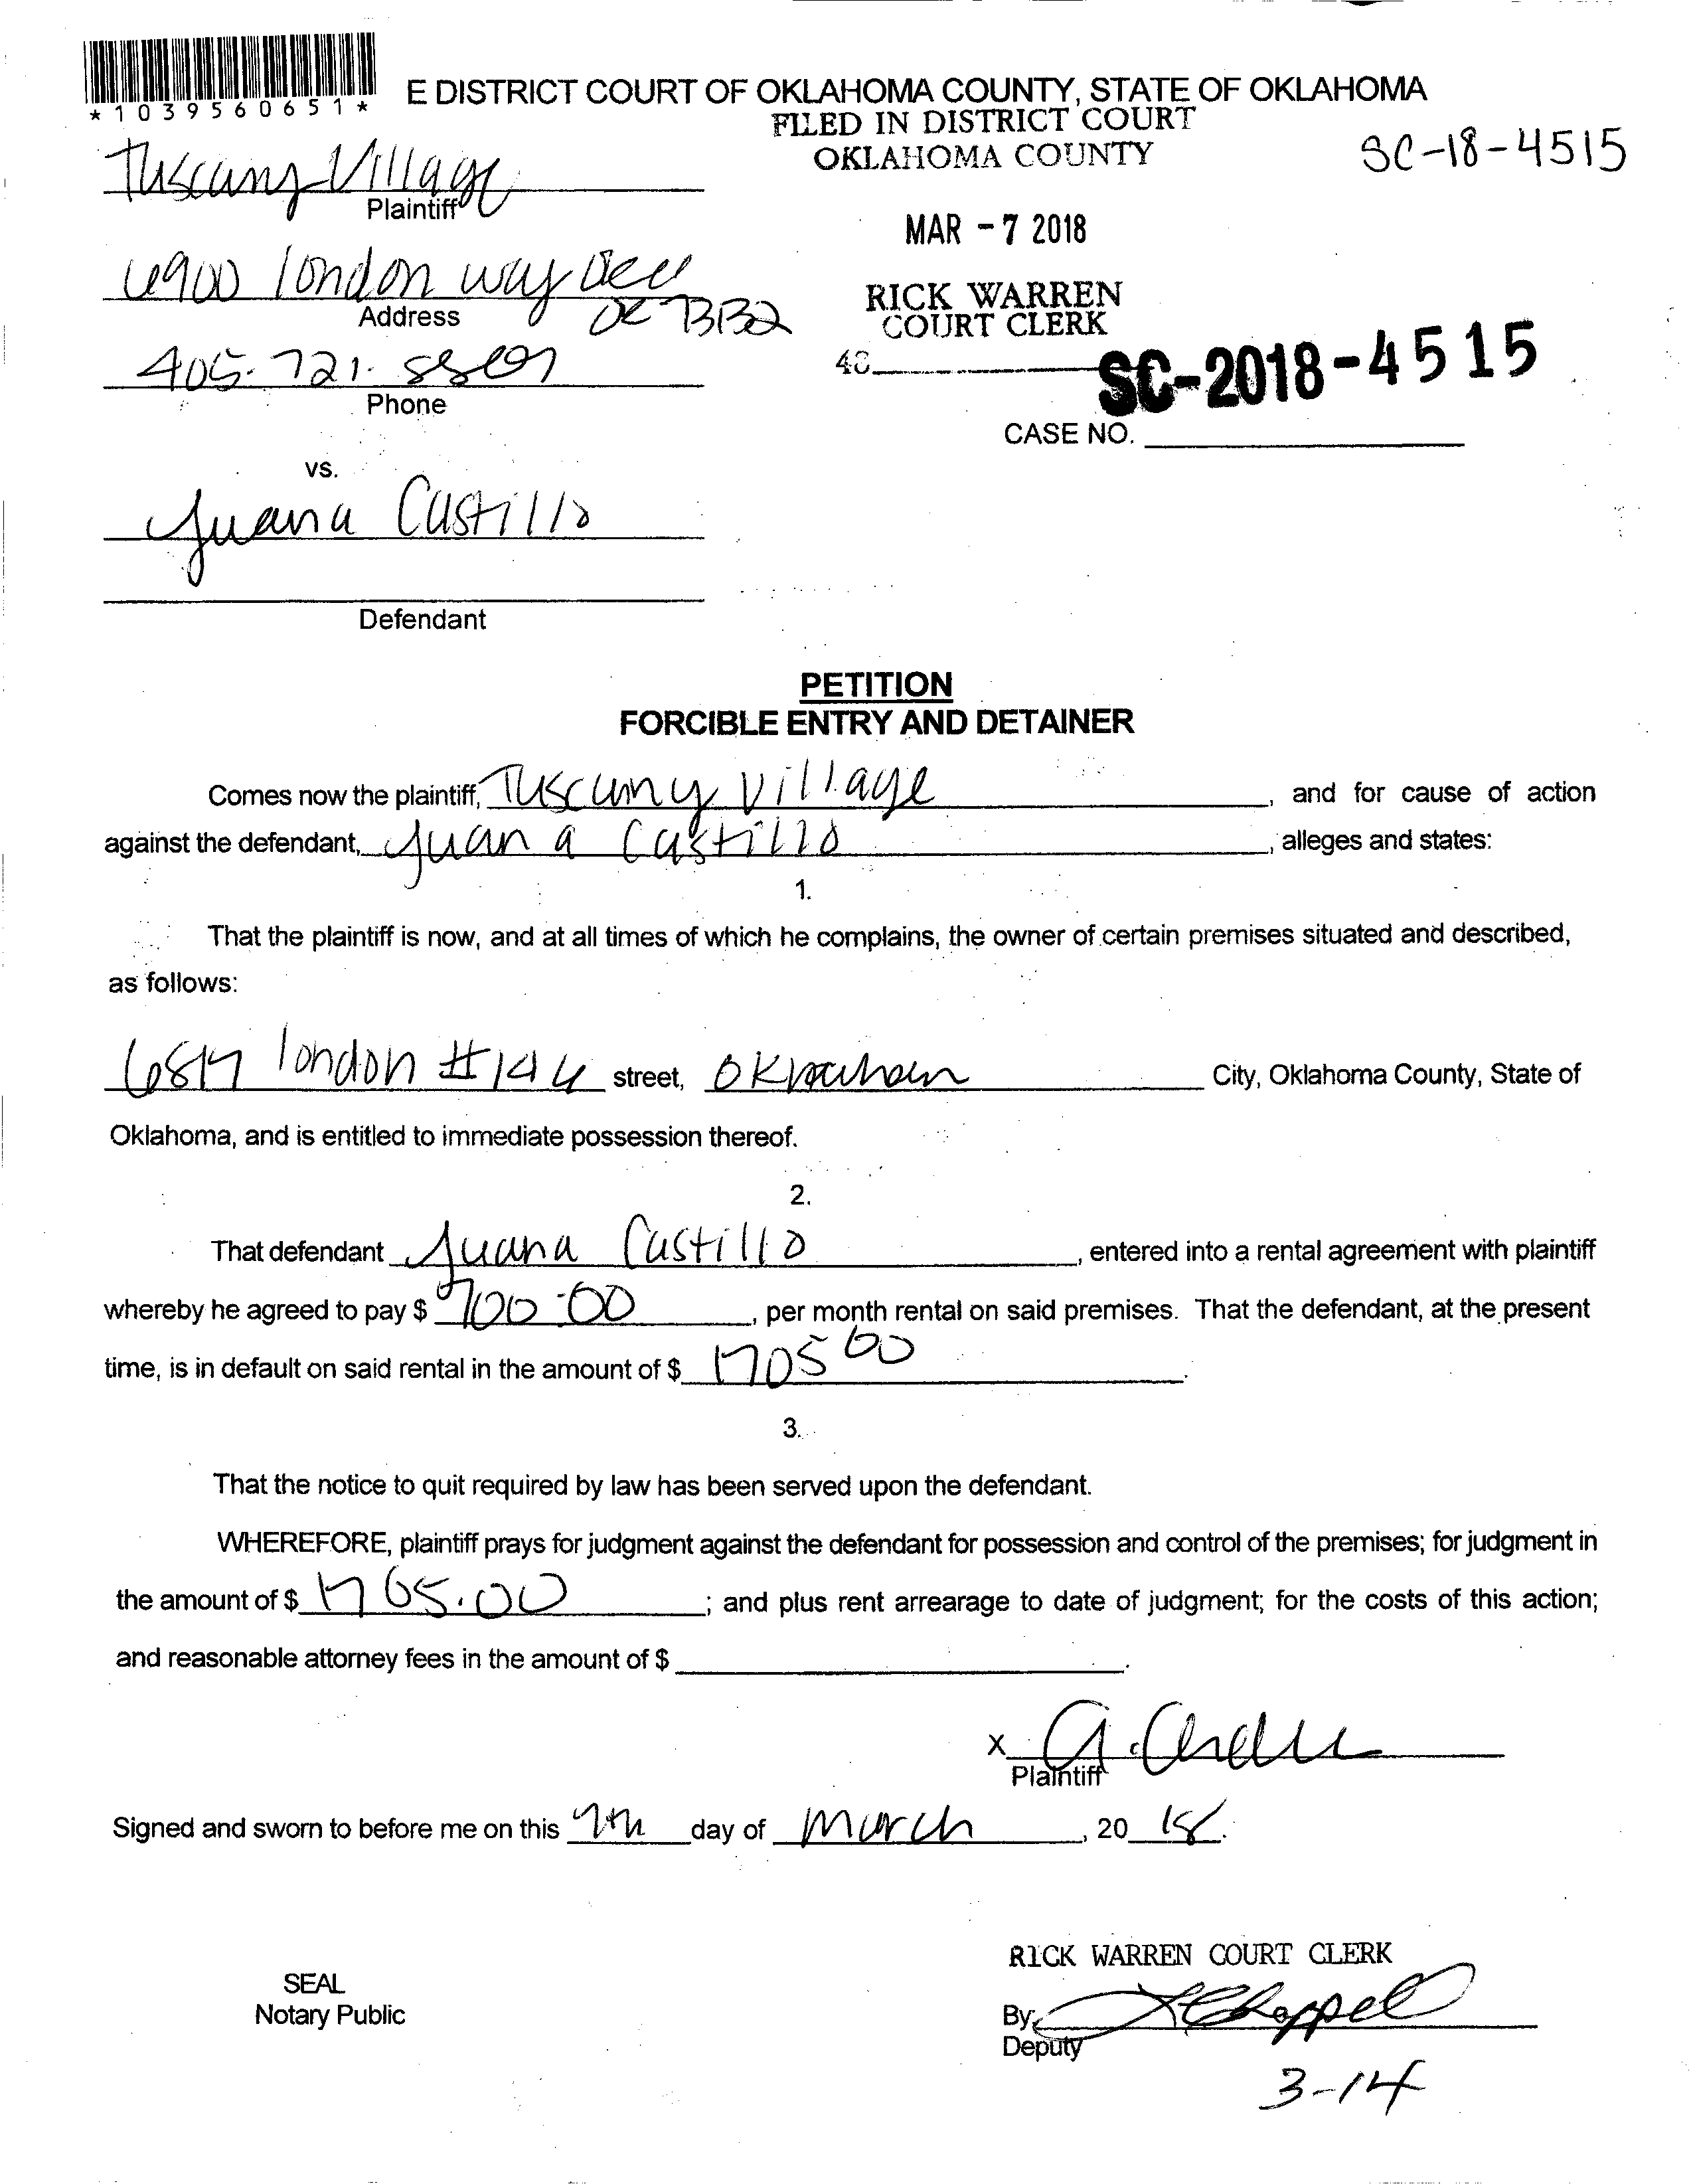 *1039560651*
E DISTRICT COURT OF OKLAHOMA COUNTY, STATE OF OKLAHOMA
FILED IN DISTRICT COURT
OKLAHOMA COUNTY
SC-18-4515
Tuscany Village
Plaintiff
MAR - 7 2018
6900 london way
Address
73132
RICK WARREN
COURT CLERK
405-721-
Phone
SC-2018-4515
CASE NO.
vs.
Juana Castillo
Defendant
PETITION
FORCIBLE ENTRY AND DETAINER
Comes now the plaintiff, Tuscany Village, and for cause of action
against the defendant, Juana Castillo, alleges and states:
1.
That the plaintiff is now, and at all times of which he complains, the owner of certain premises situated and described,
as follows:
london street, City, Oklahoma County, State of
Oklahoma, and is entitled to immediate possession thereof.
2.
That defendant Juana Castillo, entered into a rental agreement with plaintiff
whereby he agreed to pay $ 700.00, per month rental on said premises. That the defendant, at the present
time, is in default on said rental in the amount of $ 1705 00.
3.
That the notice to quit required by law has been served upon the defendant.
WHEREFORE, plaintiff prays for judgment against the defendant for possession and control of the premises; for judgment in
the amount of $ 1765.00; and plus rent arrearage to date of judgment; for the costs of this action;
and reasonable attorney fees in the amount of $
X
Plaintiff
Signed and sworn to before me on this 7th day of March, 20 18.
RICK WARREN COURT CLERK
SEAL
Notary Public
By
Deputy
3-14